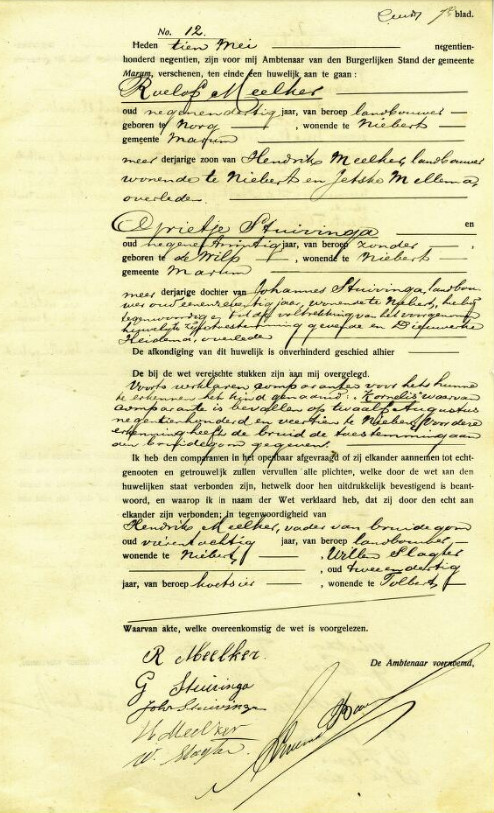 7e blad.
No. 12.
Heden tien Mei negentien-
honderd negentien, zijn voor mij Ambtenaar van den Burgerlijken Stand der gemeente
Marum, verschenen, ten einde een huwelijk aan te gaan :
Roelof Meelker
oud negenendertig jaar, van beroep landbouwer
geboren te Norg , wonende te Niebert
gemeente Marum
meerderjarige zoon van Hendrik Meelker, landbouwer
wonende te Niebert en Jetske Mellema,
overleden.
Grietje Stuivinga en
oud negenentwintig jaar, van beroep zonder
geboren te de Wilp , wonende te Niebert
gemeente Marum
meerderjarige dochter van Johannes Stuivinga, landbou-
wer oud eenenzestig jaar, wonende te Niebert, hierbij
tegenwoordig en tot de voltrekking van het voorgenomen
huwelijk zijn toestemming gevende en Dieuwerke
Heidema, overleden
De afkondiging van dit huwelijk is onverhinderd geschied alhier
De bij de wet vereischte stukken zijn aan mij overgelegd.
Voorts verklaren comparanten voor het hunne
te erkennen het kind genaamd: Kornelis waarvan
comparante is bevallen op twaalf Augustus
negentienhonderd en veertien te Niebert. Voor deze
erkenning heeft de bruid de toestemming aan
den bruidegom gegeven.
Ik heb den comparanten in het openbaar afgevraagd of zij elkander aannemen tot echt-
genooten en getrouwelijk zullen vervullen alle plichten, welke door de wet aan den
huwelijken staat verbonden zijn, hetwelk door hen uitdrukkelijk bevestigend is beant-
woord, en waarop ik in naam der Wet verklaard heb, dat zij door den echt aan
elkander zijn verbonden; in tegenwoordigheid van
Hendrik Meelker, vader van bruidegom
oud vierentachtig jaar, van beroep landbouwer
wonende te Niebert , Willem Slagter
, oud tweeendertig
jaar, van beroep koetsier , wonende te Tolbert
Waarvan akte, welke overeenkomstig de wet is voorgelezen.
R Meelker De Ambtenaar voornoemd,
G Stuivinga
Joh Stuivinga
H Meelker
W. Slagter